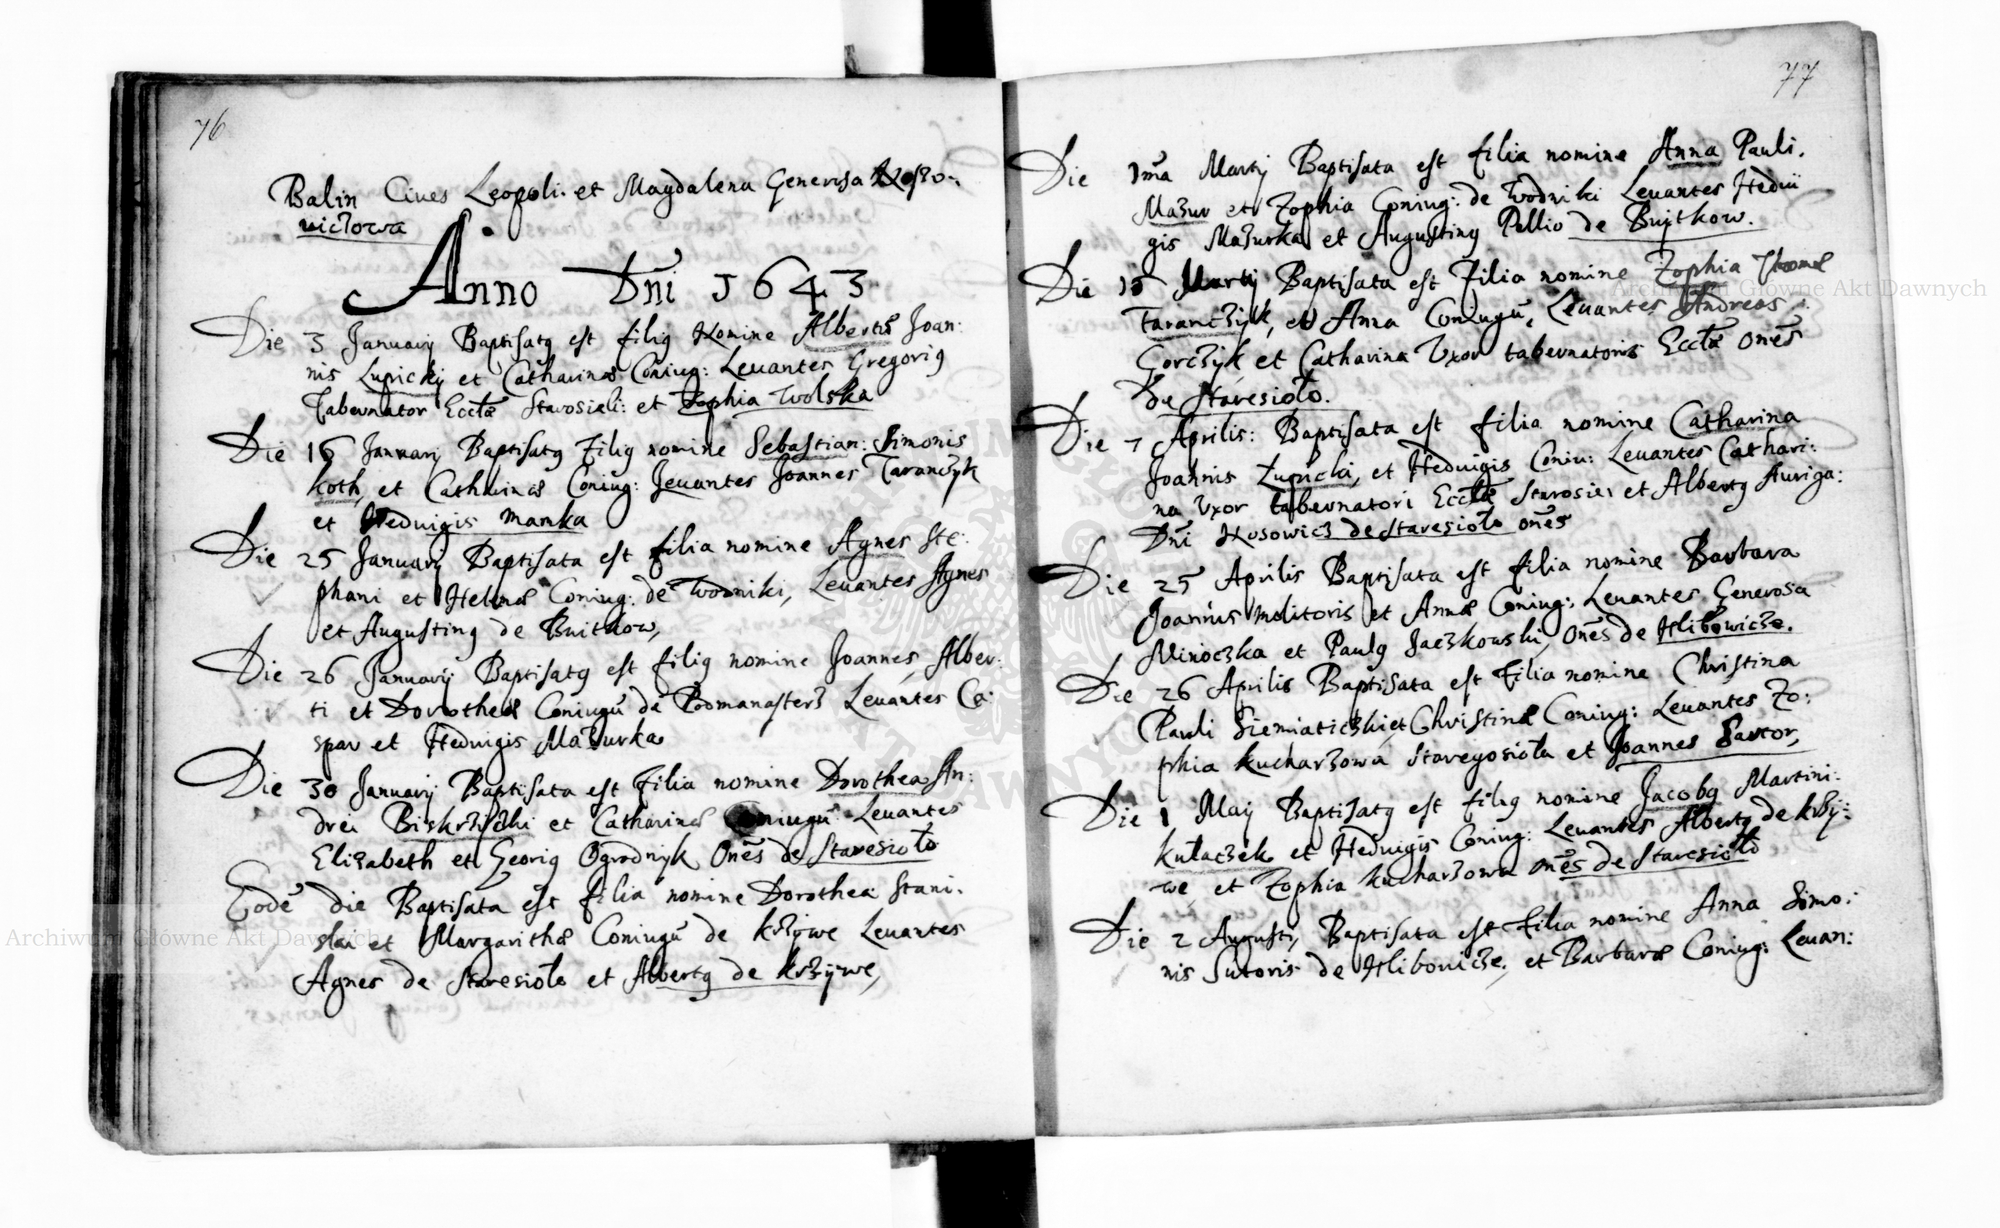 76
Balin Cives Leopoli. et Magdalena Generosa
wiczowa
Anno Dni 1643
Die 3 January Baptisatq est filiq Nomine Albertq Joan:
nis Lupickij et Catharinæ Coniug: Levantes Gregoriq
Tabernator Ecctæ Starosieli: et Zophia Wolska
Die 16 January Baptisatq filiq nomine Sebastian: Simonis
Koth, et Catharinæ Coniug: Levantes Joannes Taranczyk
et Hedvigis Manka
Die 25 January Baptisata est filia nomine Agnes Ste:
phani et Helenæ Coniug: de Wodniki, Levantes Agnes
et Augustinq de Buitkow,
Die 26 January Baptisatq est filiq nomine Joannes, Alber:
ti et Dorotheæ Coniugū de Podmanasterz Levantes Ca:
spar et Hedvigis Mazurka
Die 30 January Baptisata est filia nomine Dorothea An:
drei et Catharinæ Coniugū Levantes
Elizabeth et Georiq Ogrodnyk Onēs de Staresioło
Eodē die Baptisata est filia nomine Dorothea Stani:
slai et Margarithæ Coniugū de Krzywe Levantes
Agnes de Staresioło et Albertq de Krzywe,
77
Die 1mā Martij Baptisata est filia nomine Anna Pauli.
Mazur et Zophia Coniug: de Wodniki Levantes Hedvi
gis Mazurka et Augustinq Pellio de Buitkow.
Die Martij Baptisata est filia nomine Zophia Thomæ
Taranczyk, et Anna Coniugū, Levantes Andreas
Gorczyk et Catharina Uxor tabernatoris Ecctæ onēs
de Staresioło.
Die 7 Aprilis: Baptisata est filia nomine Catharina
Joannis Łupicki, et Hedvigis Coniu: Levantes Cathari:
na Uxor tabernatori Ecctæ Starosiel et Albertq Auriga:
Dni Kosowicz de Staresioło onēs
Die 25 Aprilis Baptisata est filia nomine Barbara
Joannis Molitoris et Annæ Coniug: Levantes Generosa
Minoczka et Paulq Saczkowski, onēs de Hlibowicze.
Die 26 Aprilis Baptisata est filia nomine Christina
Pauli Siemiaticzki et Christinæ Coniug: Levantes Zo:
phia Kucharzowa Staregosioła et Joannes Sartor,
Die 1 Maij Baptisatq est filiq nomine Jacobq Martini:
Kułaczek et Hedvigis Coniug: Levantes Albertq de Krzy:
we et Zophia Kucharzowa onēs de Staresioło
Die 2 Augusti, Baptisata est filia nomine Anna Simo:
nis Sutoris de Hlibowicze, et Barbaræ Coniug: Levan:
Archiwum Główne Akt Dawnych
Archiwum Główne Akt Dawnych